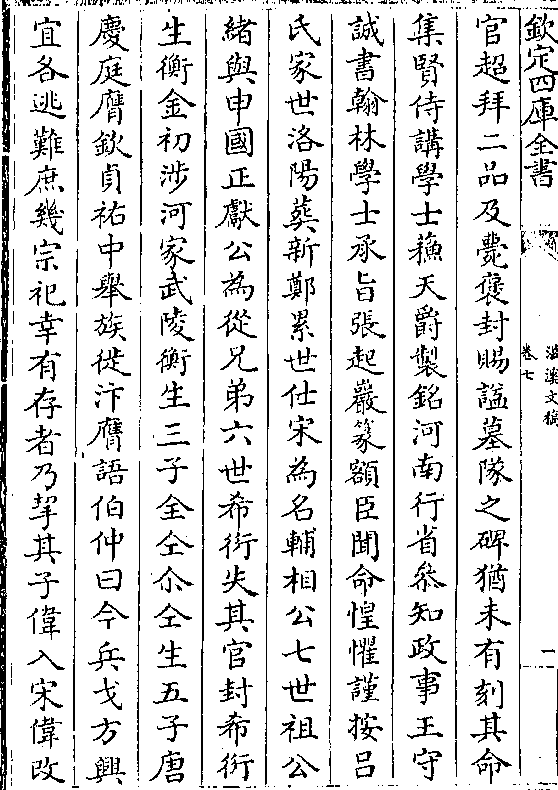 欽定四庫全書
滋溪文稿
卷七
一
官超拜二品及薨褒封賜諡墓隧之碑猶未有刻其命
集賢侍講學士蘇天爵製銘河南行省叅知政事王守
誠書翰林學士承旨張起巖篆額臣聞命惶懼謹按吕
氏家世洛陽葬新鄭累世仕宋為名輔相公七世祖公
緒與申國正獻公為從兄弟六世希衍失其官封希衍
生衡金初涉河家武陵衡生三子全仝尒仝生五子唐
慶庭膺欽貞祐中舉族徙汴膺語伯仲曰今兵戈方興
宜各逃難庶幾宗祀幸有存者乃挈其子偉入宋偉改